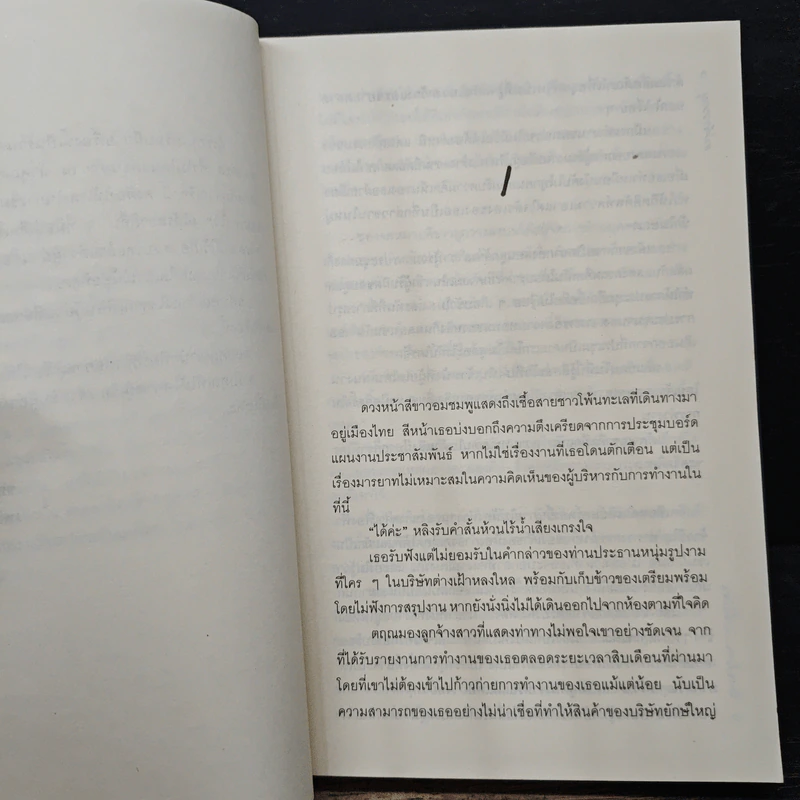 ดวงหน้าสีขาวอมชมพูแสดงถึงเชื้อสายชาวโพ้นทะเลที่เดินทางมา
อยู่เมืองไทย สีหน้าเธอบ่งบอกถึงความตึงเครียดจากการประชุมบอร์ด
แผนงานประชาสัมพันธ์ หากไม่ใช่เรื่องงานที่เธอโดนตักเตือน แต่เป็น
เรื่องมารยาทไม่เหมาะสมในความคิดเห็นของผู้บริหารกับการทำงานใน
ที่นี้
“ได้ค่ะ” หลิงรับคำสั้นห้วนไร้น้ำเสียงเกรงใจ
เธอรับฟังแต่ไม่ยอมรับในคำกล่าวของท่านประธานหนุ่มรูปงาม
ที่ใคร ๆ ในบริษัทต่างเฝ้าหลงใหล พร้อมกับเก็บข้าวของเตรียมพร้อม
โดยไม่ฟังการสรุปงาน หากยังนั่งนิ่งไม่ได้เดินออกไปจากห้องตามที่ใจคิด
ตฤณมองลูกจ้างสาวที่แสดงท่าทางไม่พอใจเขาอย่างชัดเจน จาก
ที่ได้รับรายงานการทำงานของเธอตลอดระยะเวลาสิบเดือนที่ผ่านมา
โดยที่เขาไม่ต้องเข้าไปก้าวก่ายการทำงานของเธอแม้แต่น้อย นับเป็น
ความสามารถของเธออย่างไม่น่าเชื่อที่ทำให้สินค้าของบริษัทยักษ์ใหญ่